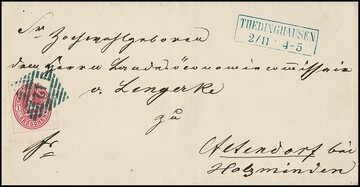 THEDINGHAUSEN
2/11 4-5
Sr. Hochwohlgeboren
dem Herrn Landesöconomiecommissair
v. Lengerke
zu
fr.
Altendorf bei
Holzminden